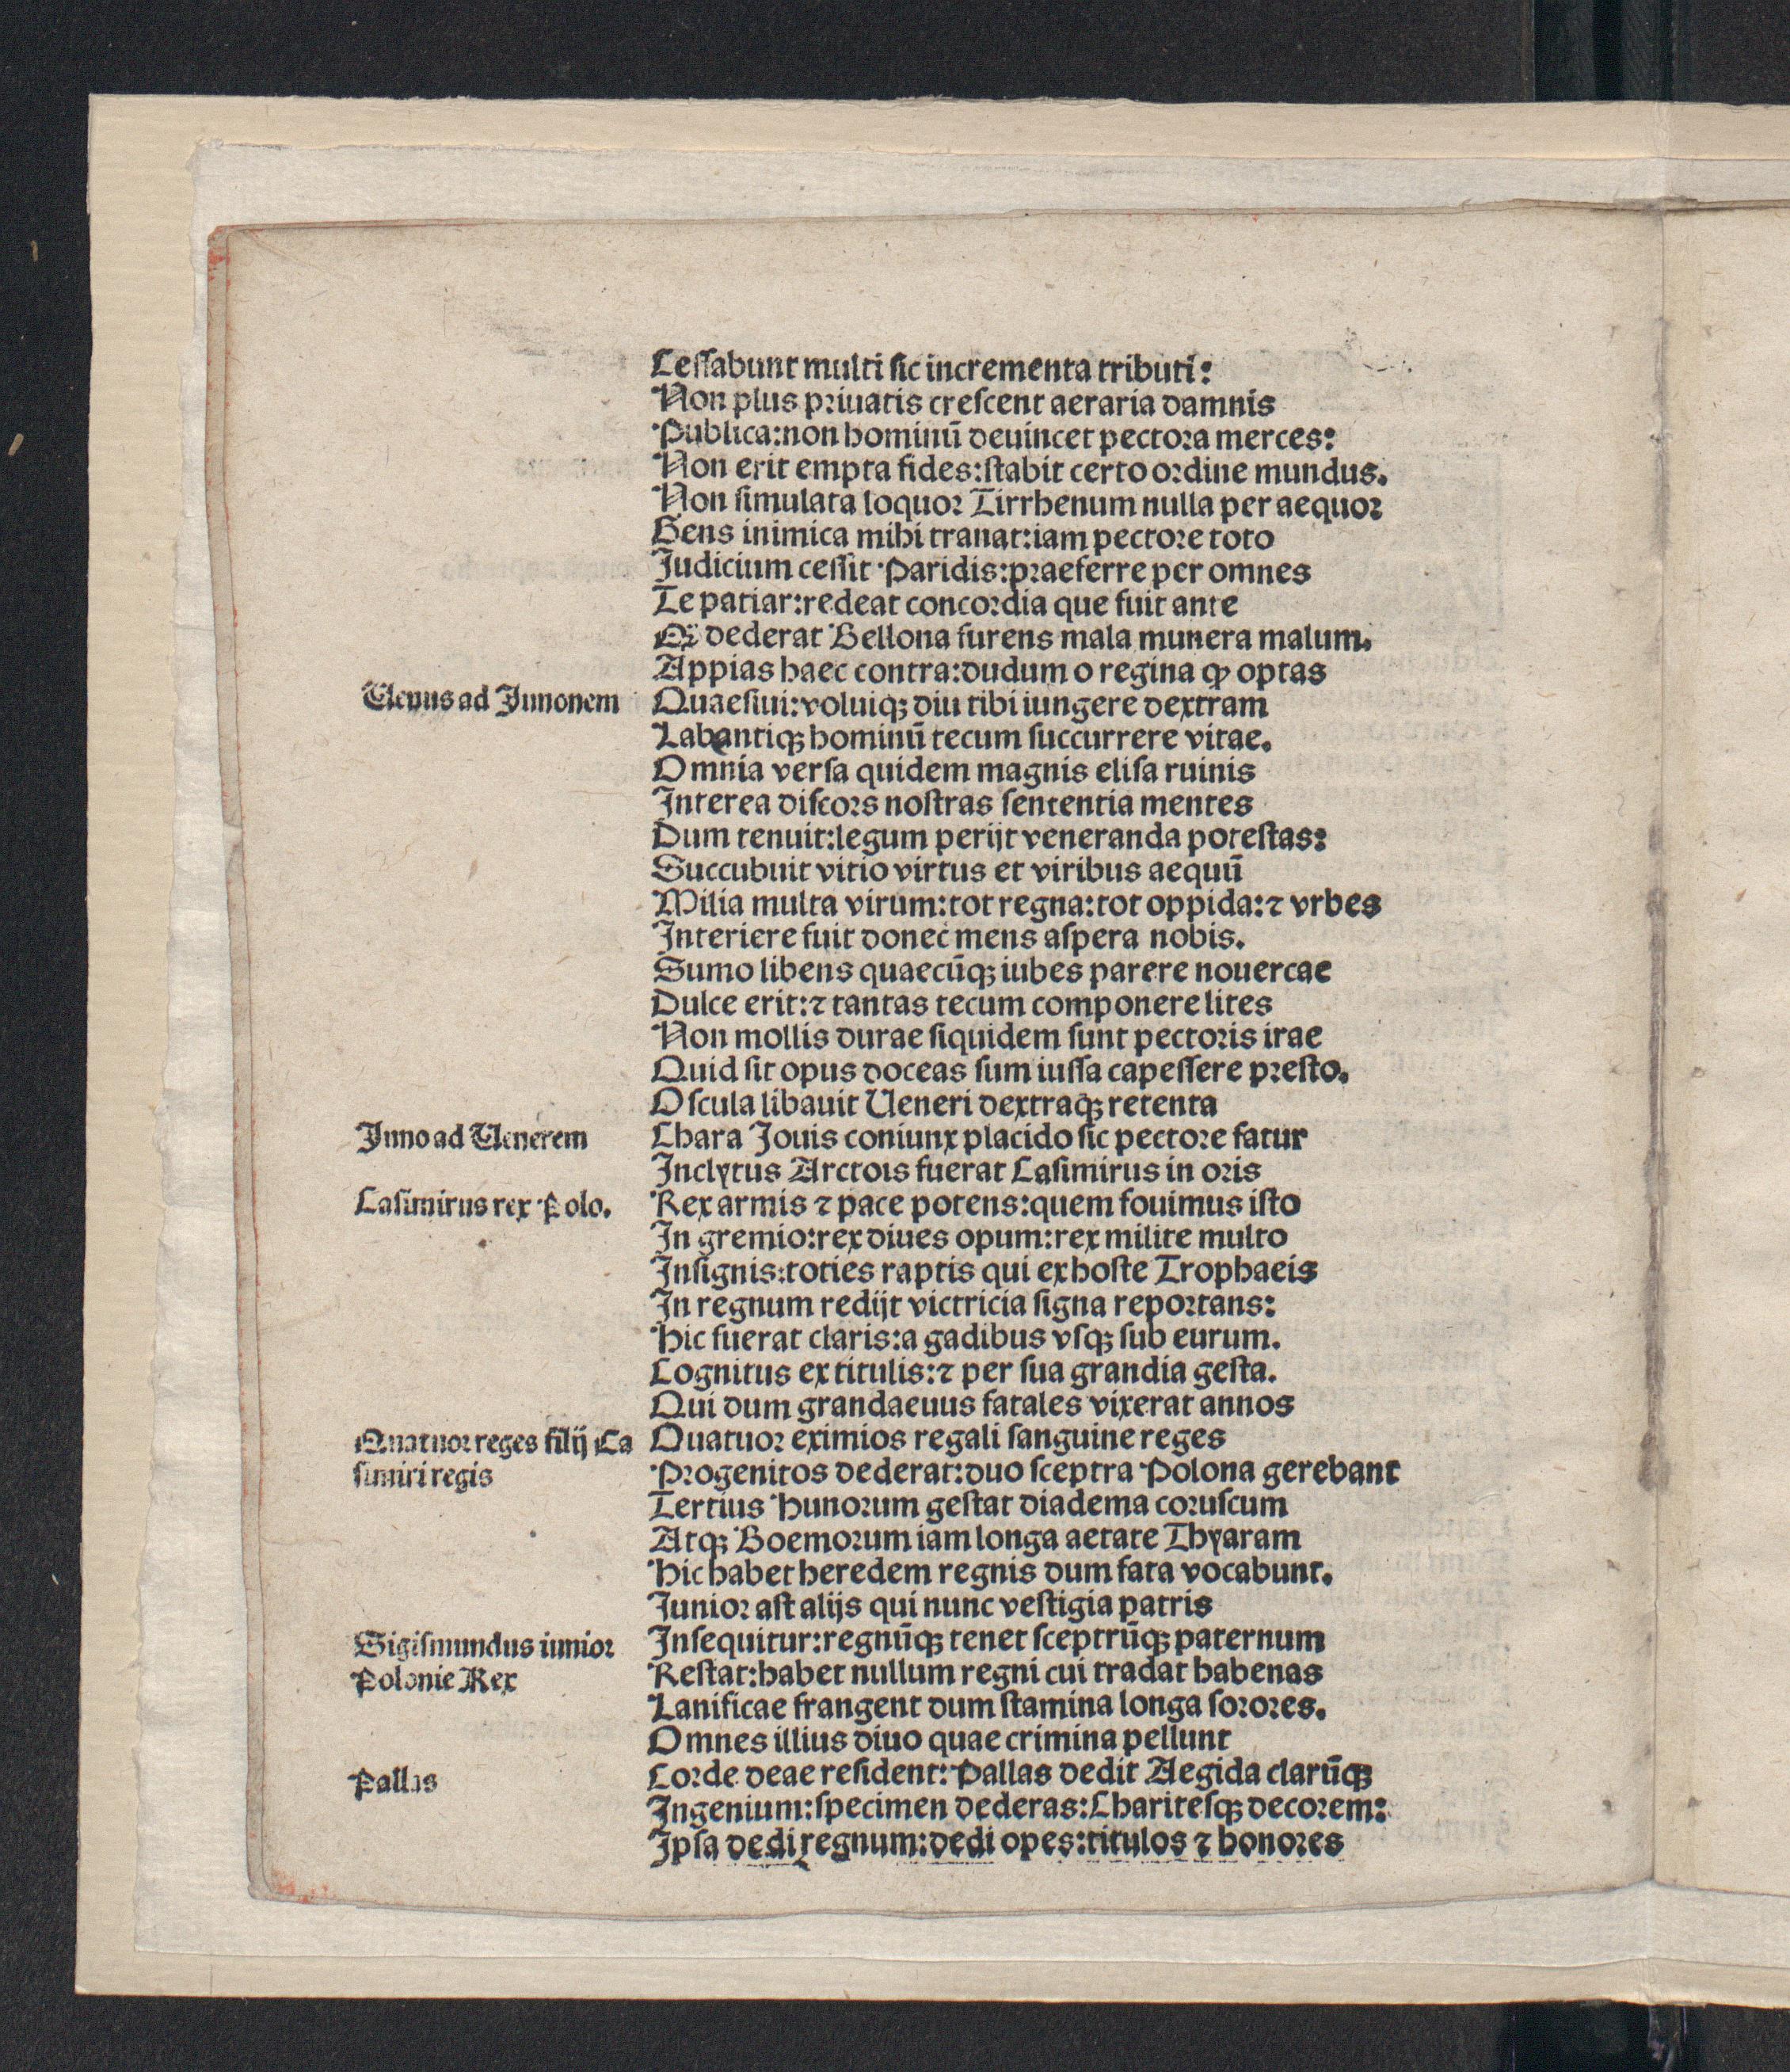 Cessabunt multi sic incrementa tributi:
Non plus priuatis crescent aeraria damnis
Publica: non hominū deuincet pectora merces:
Non erit empta fides: stabit certo ordine mundus.
Non simulata loquor Tirrhenum nulla per aequor
Gens inimica mihi tranat: iam pectore toto
Judicium cessit Paridis: praeferre per omnes
Te patiar: redeat concordia que fuit ante
dederat Bellona furens mala munera malum.
Appias haec contra: dudum o regina ꝙ optas
Uenus ad Junonem
Quaesiui: voluiqꝫ diu tibi iungere dextram
Labantiqꝫ hominū tecum succurrere vitae.
Omnia versa quidem magnis elisa ruinis
Interea discors nostras sententia mentes
Dum tenuit: legum perijt veneranda potestas:
Succubuit vitio virtus et viribus aequū
Milia multa virum: tot regna: tot oppida: ⁊ vrbes
Interiere fuit donec mens aspera nobis.
Sumo libens quaecūqꝫ iubes parere nouercae
Dulce erit: ⁊ tantas tecum componere lites
Non mollis durae siquidem sunt pectoris irae
Quid sit opus doceas sum iussa capessere presto.
Oscula libauit Ueneri dextraqꝫ retenta
Juno ad Uenerem
Chara Jouis coniunx placido sic pectore fatur
Inclytus Arctois fuerat Casimirus in oris
Casimirus rex Polo.
Rex armis ⁊ pace potens: quem fouimus isto
In gremio: rex diues opum: rex milite multo
Insignis: toties raptis qui ex hoste Trophaeis
In regnum redijt victricia signa reportans:
Hic fuerat claris: a gadibus vsqꝫ sub eurum.
Cognitus ex titulis: ⁊ per sua grandia gesta.
Qui dum grandaeuus fatales vixerat annos
Quatuor reges filij Ca
Quatuor eximios regali sanguine reges
simiri regis
Progenitos dederat: duo sceptra Polona gerebant
Tertius Hunorum gestat diadema coruscum
Atqꝫ Boemorum iam longa aetate Thyaram
Hic habet heredem regnis dum fata vocabunt.
Junior ast alijs qui nunc vestigia patris
Sigismundus iunior
Insequitur: regnūqꝫ tenet sceptrūqꝫ paternum
Polonie Rex
Restat: habet nullum regni cui tradat habenas
Lanificae frangent dum stamina longa sorores.
Omnes illius diuo quae crimina pellunt
Pallas
Corde deae resident: Pallas dedit Aegida clarūqꝫ
Ingenium: specimen dederas: Charitesqꝫ decorem:
Ipsa dedi regnum: dedi opes: titulos ⁊ honores